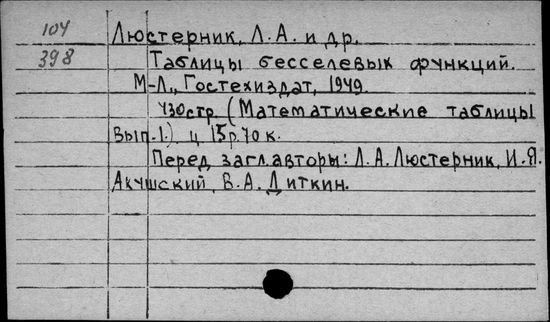 104 Люстерник, Л.А. и др.
398 Таблицы бесселевых функций.
М-Л., Гостехиздат, 1949.
430стр. (Математические таблицы
Вып.1.) ц 15р.70к.
Перед загл.авторы: Л.А.Люстерник, И.Я.
Акушский, В.А.Диткин.